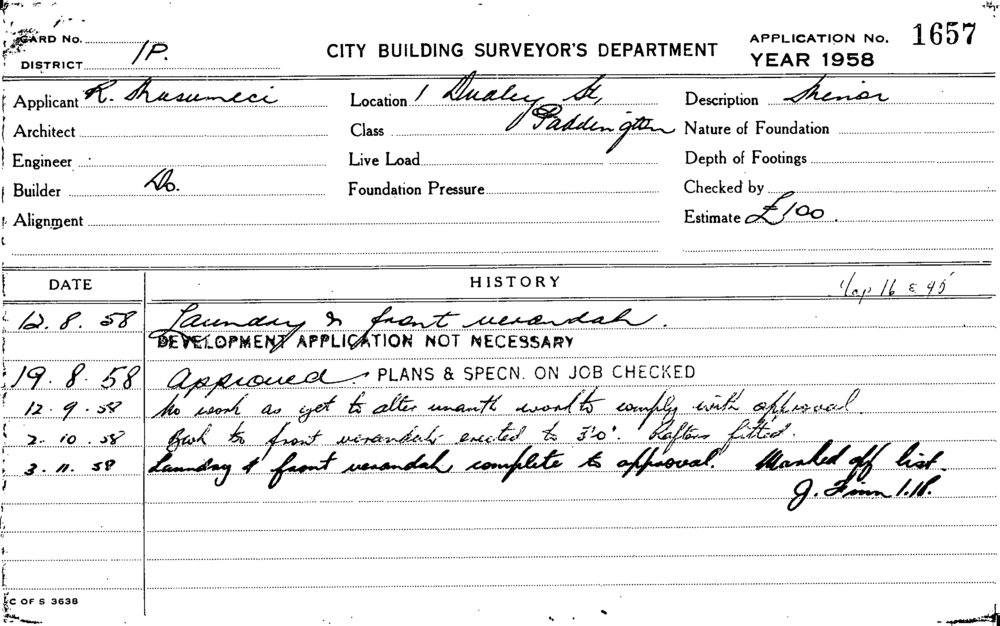 CARD No.
DISTRICT 1P.
CITY BUILDING SURVEYOR'S DEPARTMENT
APPLICATION No. 1657
YEAR 1958
Applicant R.
Location 1 Dudley St,
Paddington
Description Minor
Architect
Class
Nature of Foundation
Engineer
Live Load
Depth of Footings
Builder Do.
Foundation Pressure
Checked by
Alignment
Estimate £100.
DATE
HISTORY
16 & 45
12. 8. 58 Laundry & front verandah.
DEVELOPMENT APPLICATION NOT NECESSARY
19. 8. 58 Approved. PLANS & SPECN. ON JOB CHECKED
12. 9. 58 No work as yet to alter unauth work to comply with approval.
2. 10. 58 Bwk to front verandah erected to 3'0". Rafters fitted.
3. 11. 58 Laundry & front verandah complete to approval. Marked off list.
J. Finn 1.P.
C OF S 3638